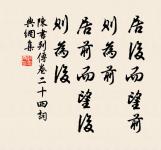 居後而望前
則為前
居前而望後
則為後
陳書列傳卷二十四詞
典網集